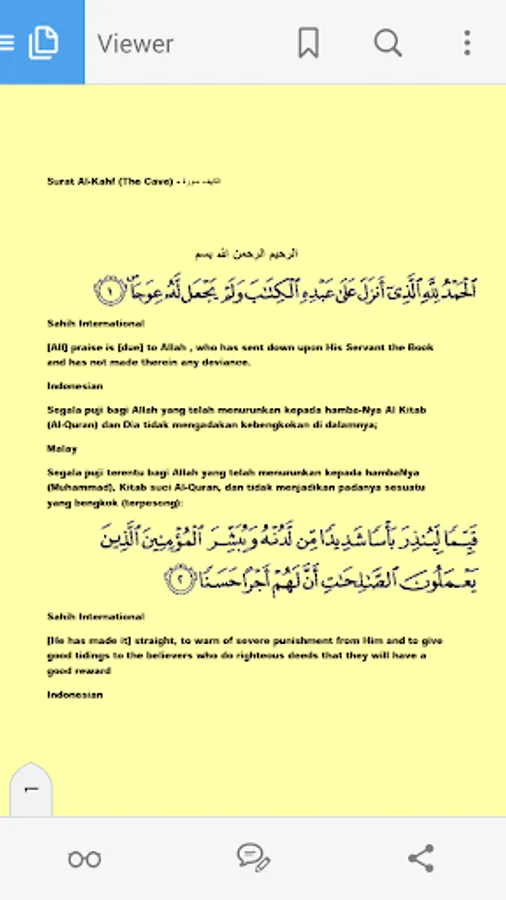 Viewer
Surat Al-Kahf (The Cave) - الكهف سورة
الرحيم الرحمن الله بسم
ٱلْحَمْدُ لِلَّهِ ٱلَّذِىٓ أَنزَلَ عَلَىٰ عَبْدِهِ ٱلْكِتَـٰبَ وَلَمْ يَجْعَل لَّهُۥ عِوَجَاۜ ١
Sahih International
[All] praise is [due] to Allah , who has sent down upon His Servant the Book
and has not made therein any deviance.
Indonesian
Segala puji bagi Allah yang telah menurunkan kepada hamba-Nya Al Kitab
(Al-Quran) dan Dia tidak mengadakan kebengkokan di dalamnya;
Malay
Segala puji terentu bagi Allah yang telah menurunkan kepada hambaNya
(Muhammad), Kitab suci Al-Quran, dan tidak menjadikan padanya sesuatu
yang bengkok (terpesong):
قَيِّمًا لِّيُنذِرَ بَأْسًا شَدِيدًا مِّن لَّدُنْهُ وَيُبَشِّرَ ٱلْمُؤْمِنِينَ ٱلَّذِينَ
يَعْمَلُونَ ٱلصَّـٰلِحَـٰتِ أَنَّ لَهُمْ أَجْرًا حَسَنًا ٢
Sahih International
[He has made it] straight, to warn of severe punishment from Him and to give
good tidings to the believers who do righteous deeds that they will have a
good reward
Indonesian
1